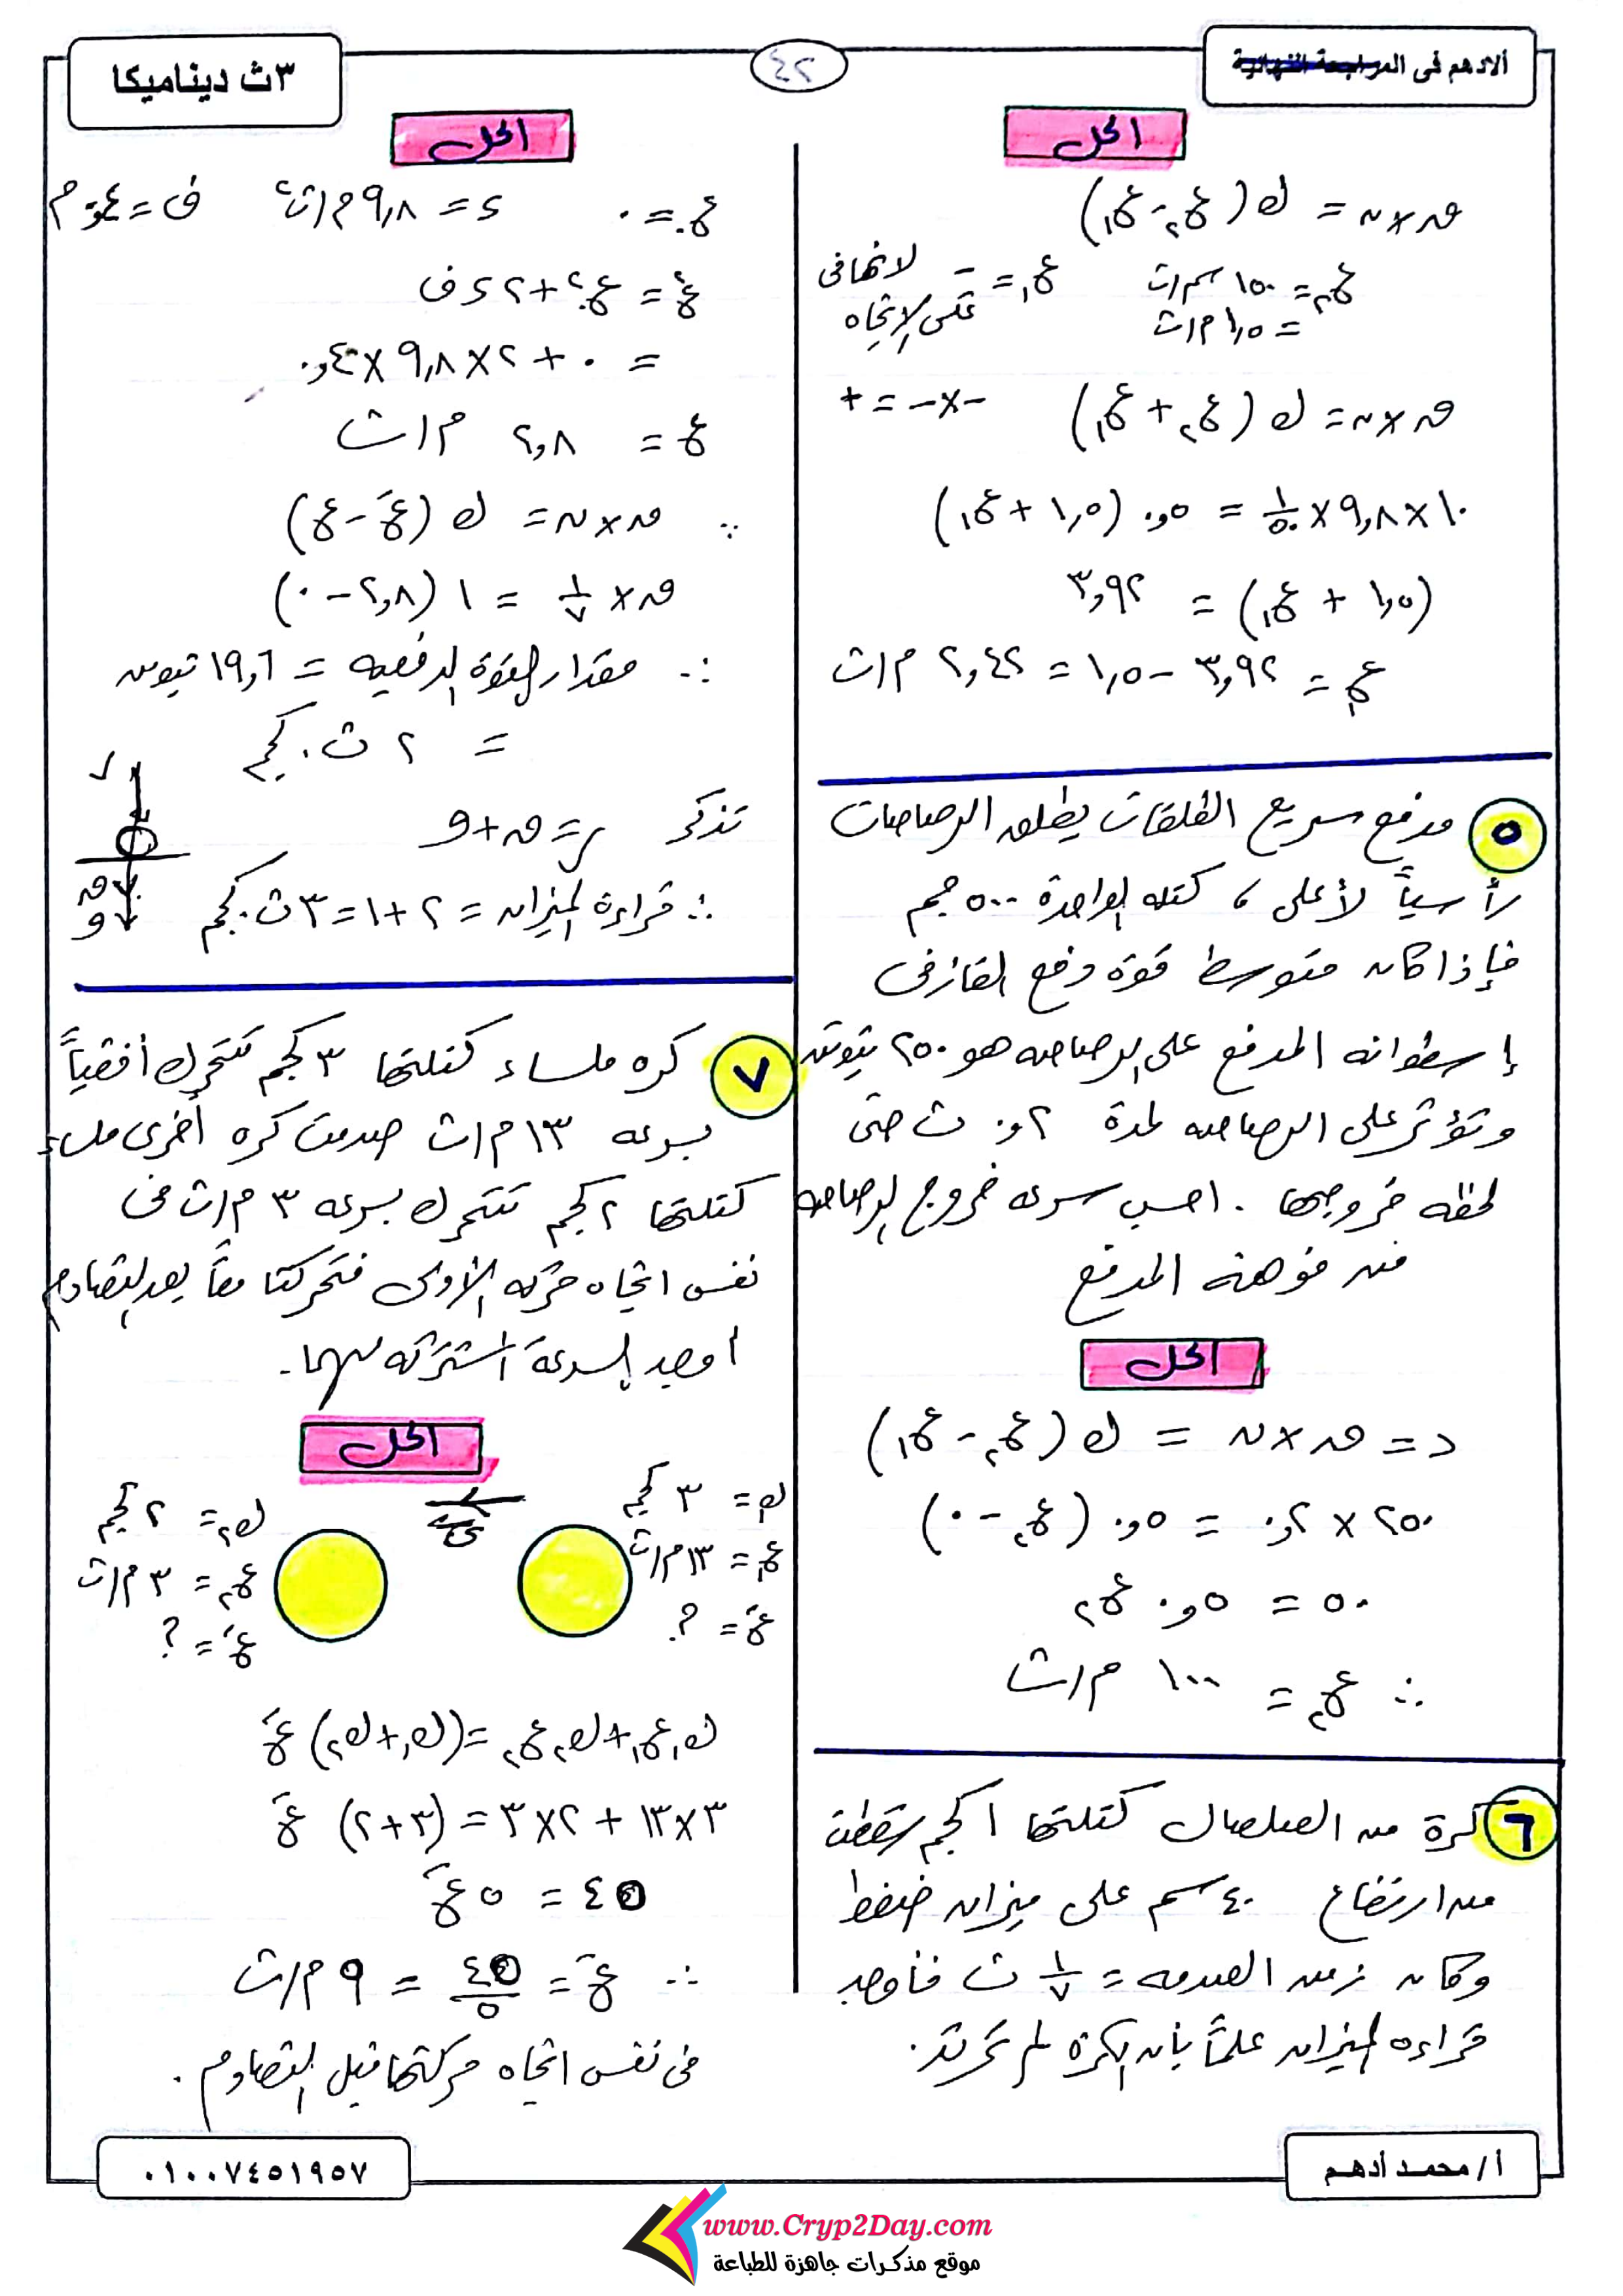 ألادهم فى المراجعة النهائية
٤٢
٣ث ديناميكا
الحل
ق × ن = ك (ع٢ - ع١)
ع٢ = ١٥٠ سم/ث
= ١,٥ م/ث
ع١ = - لانها فى
عكس الإتجاه
ق × ن = ك (ع٢ + ع١)
- × - = +
١٠ × ٩,٨ × ١/٥٠ = ٠,٥ (١,٥ + ع١)
(١,٥ + ع١) = ٣,٩٢
ع١ = ٣,٩٢ - ١,٥ = ٢,٤٢ م/ث
٥ مدفع سريع الطلقات يطلق الرصاصات
رأسياً لأعلى ، كتلة الواحدة ٥٠٠ جم
فإذا كان متوسط قوة دفع الغاز فى
إسطوانة المدفع على الرصاصة هو ٢٥٠ نيوتن
وتؤثر على الرصاصة لمدة ٠,٢ ث حتى
لحظة خروجها . احسب سرعة خروج الرصاصة
من فوهة المدفع
الحل
د = ق × ن = ك (ع٢ - ع١)
٢٥٠ × ٠,٢ = ٠,٥ (ع٢ - ٠)
٥٠ = ٠,٥ ع٢
∴ ع٢ = ١٠٠ م/ث
٦ كرة من الصلصال كتلتها ١ كجم سقطت
من ارتفاع ٤٠ سم على ميزان ضغط
وكان زمن الصدمة = ١/٧ ث فأوجد
قراءة الميزان علماً بأن الكرة لم ترتد .
الحل
ع. = ٠ د = ٩,٨ م/ث٢ ف = ٠,٤ م
ع٢ = ع.٢ + ٢ د ف
= ٠ + ٢ × ٩,٨ × ٠,٤
ع = ٢,٨ م/ث
∵ ق × ن = ك (عَ - ع)
ق × ١/٧ = ١ (٢,٨ - ٠)
∴ مقدار القوة الدفعية = ١٩,٦ نيوتن
= ٢ ث.كجم
تذكر ر = ق + و
∴ قراءة الميزان = ٢ + ١ = ٣ ث.كجم
ر
ق
و
٧ كره ملساء كتلتها ٣ كجم تتحرك أفقياً
بسرعه ١٣ م/ث صدمت كره أخرى ملساء
كتلتها ٢ كجم تتحرك بسرعه ٣ م/ث فى
نفس اتجاه حركه الأولى فتحركتا معاً بعد التصادم
أوجد السرعة المشتركه لهما .
الحل
ك١ = ٣ كجم
ع١ = ١٣ م/ث
عَ = ؟
ك٢ = ٢ كجم
ع٢ = ٣ م/ث
عَ = ؟
ك١ع١ + ك٢ع٢ = (ك١ + ك٢) عَ
٣ × ١٣ + ٢ × ٣ = (٣ + ٢) عَ
٤٥ = ٥ عَ
∴ عَ = ٤٥/٥ = ٩ م/ث
فى نفس اتجاه حركتها قبل التصادم .
أ / محمد أدهم
٠١٠٠٧٤٥١٩٥٧
www.Cryp2Day.com
موقع مذكرات جاهزة للطباعة